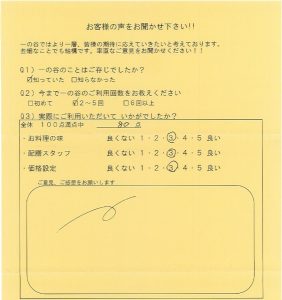 お客様の声をお聞かせ下さい!!
一の谷ではより一層、皆様の期待に応えていきたいと考えております。
些細なことでも結構です。率直なご意見をお聞かせください!!
Q1) 一の谷のことはご存じでしたか?
☑知っていた □知らなかった
Q2) 今まで一の谷のご利用回数をお教えください
□初めて ☑2~5回 □6回以上
Q3) 実際にご利用いただいて いかがでしたか?
全体 100点満点中 80点
・お料理の味 良くない 1・2・3・4・5 良い
・配膳スタッフ 良くない 1・2・3・4・5 良い
・価格設定 良くない 1・2・3・4・5 良い
ご意見、ご感想をお願いします